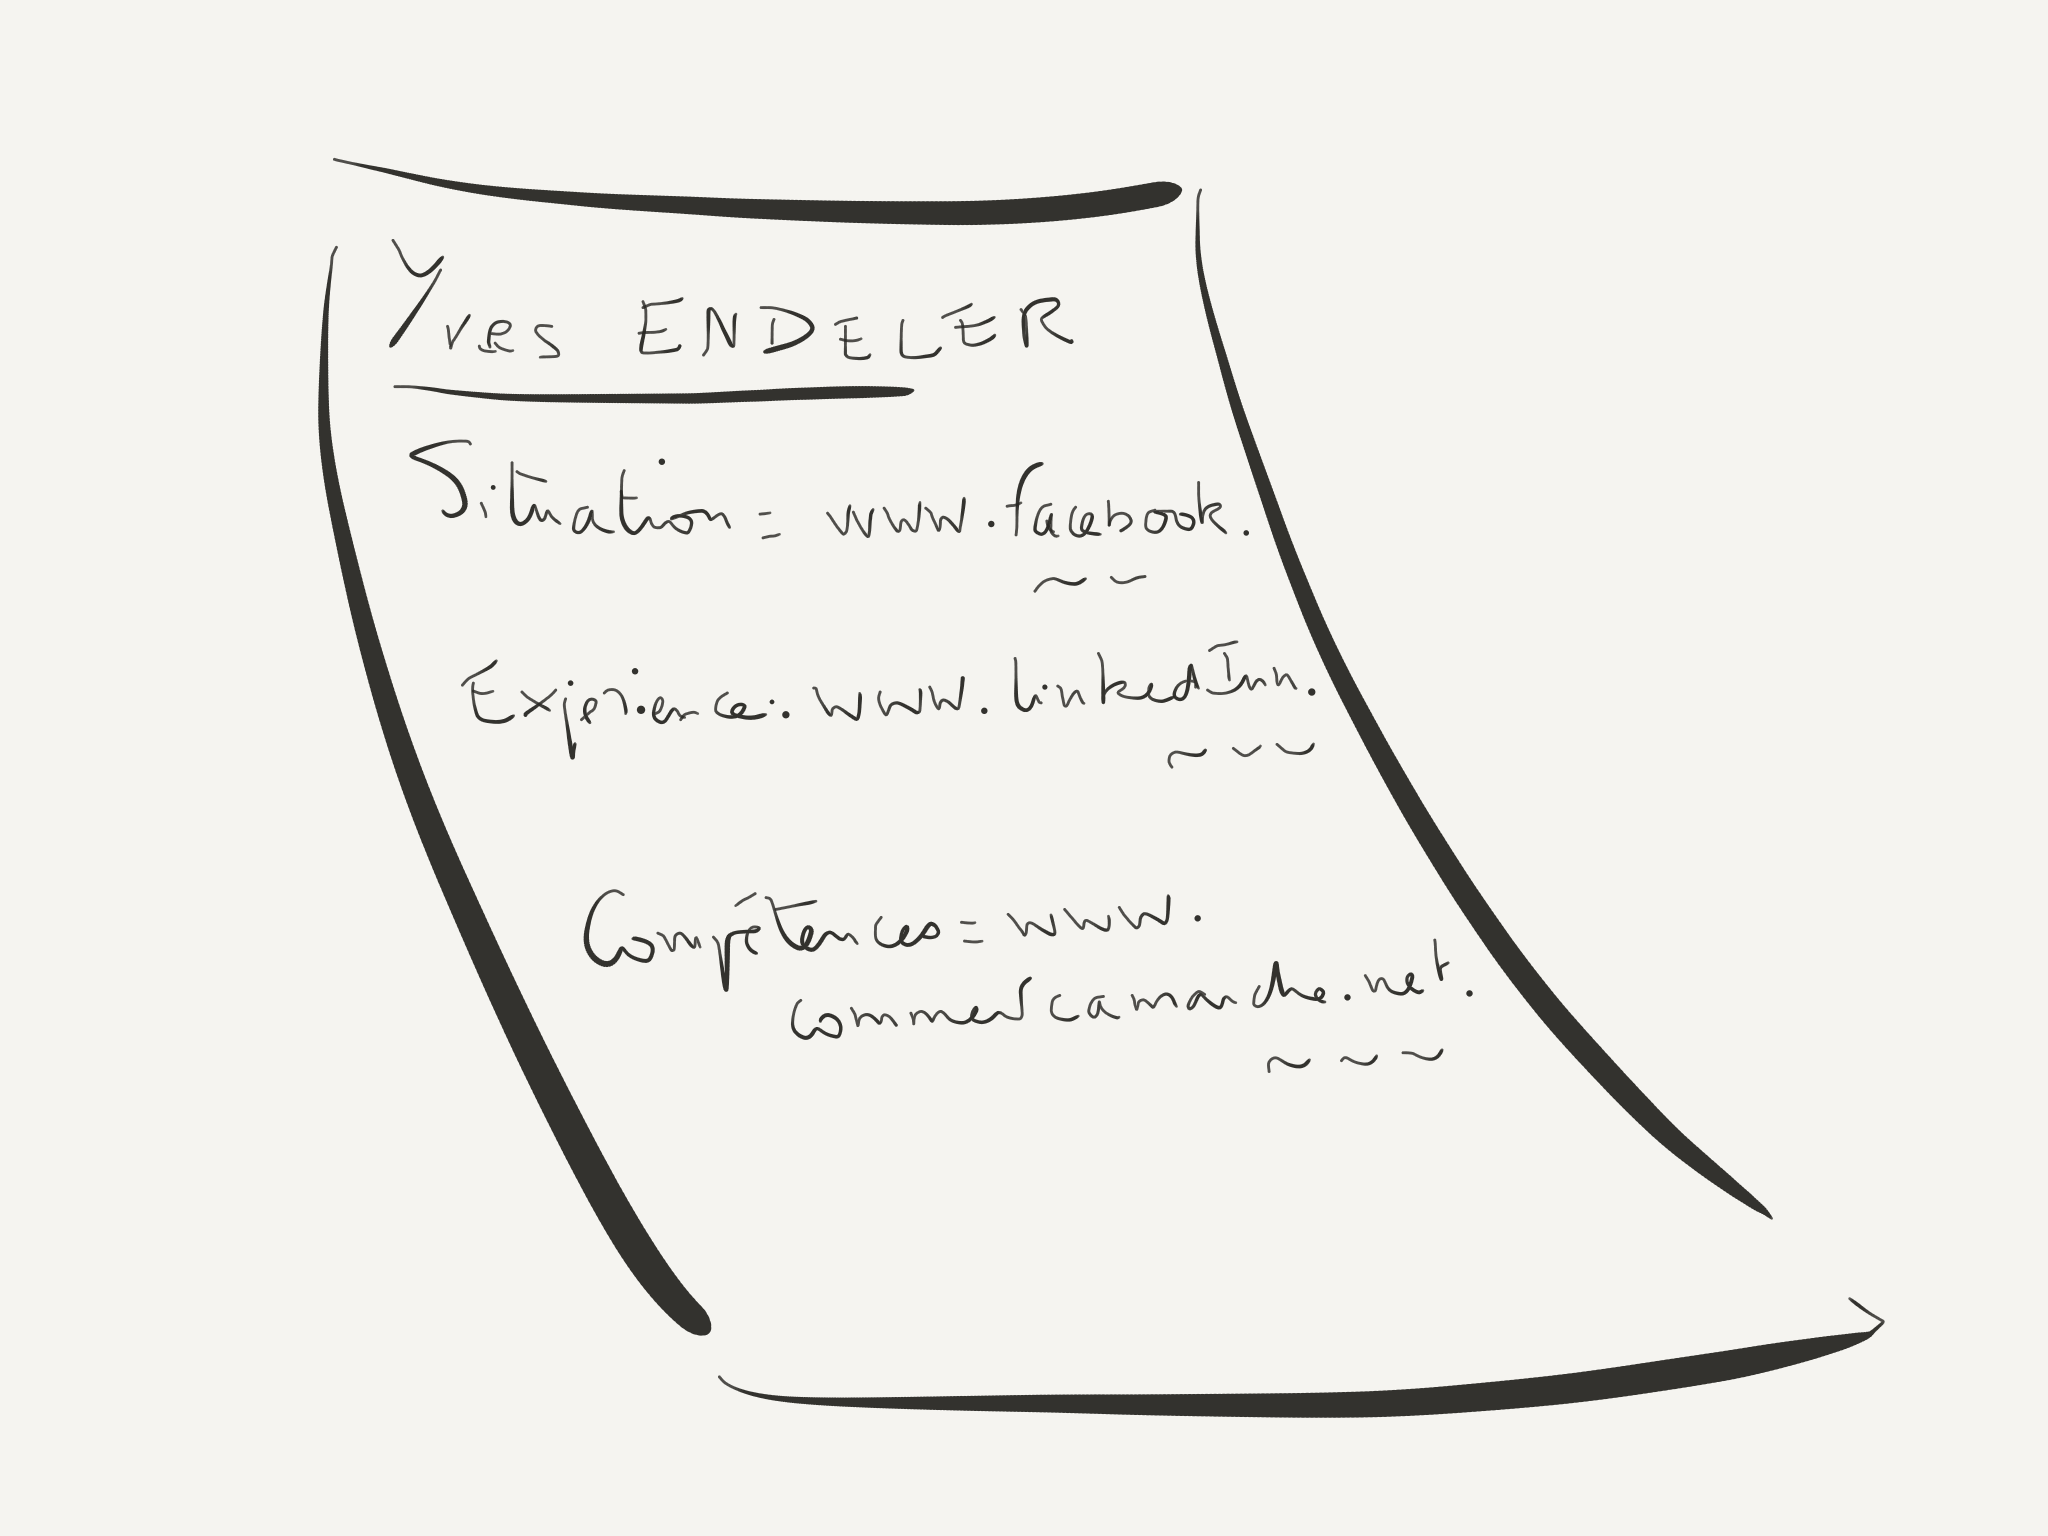 Yves ENDELER
Situation = www.facebook.
Expérience: www.linkedInn.
Compétences = www.
commentcamarche.net.